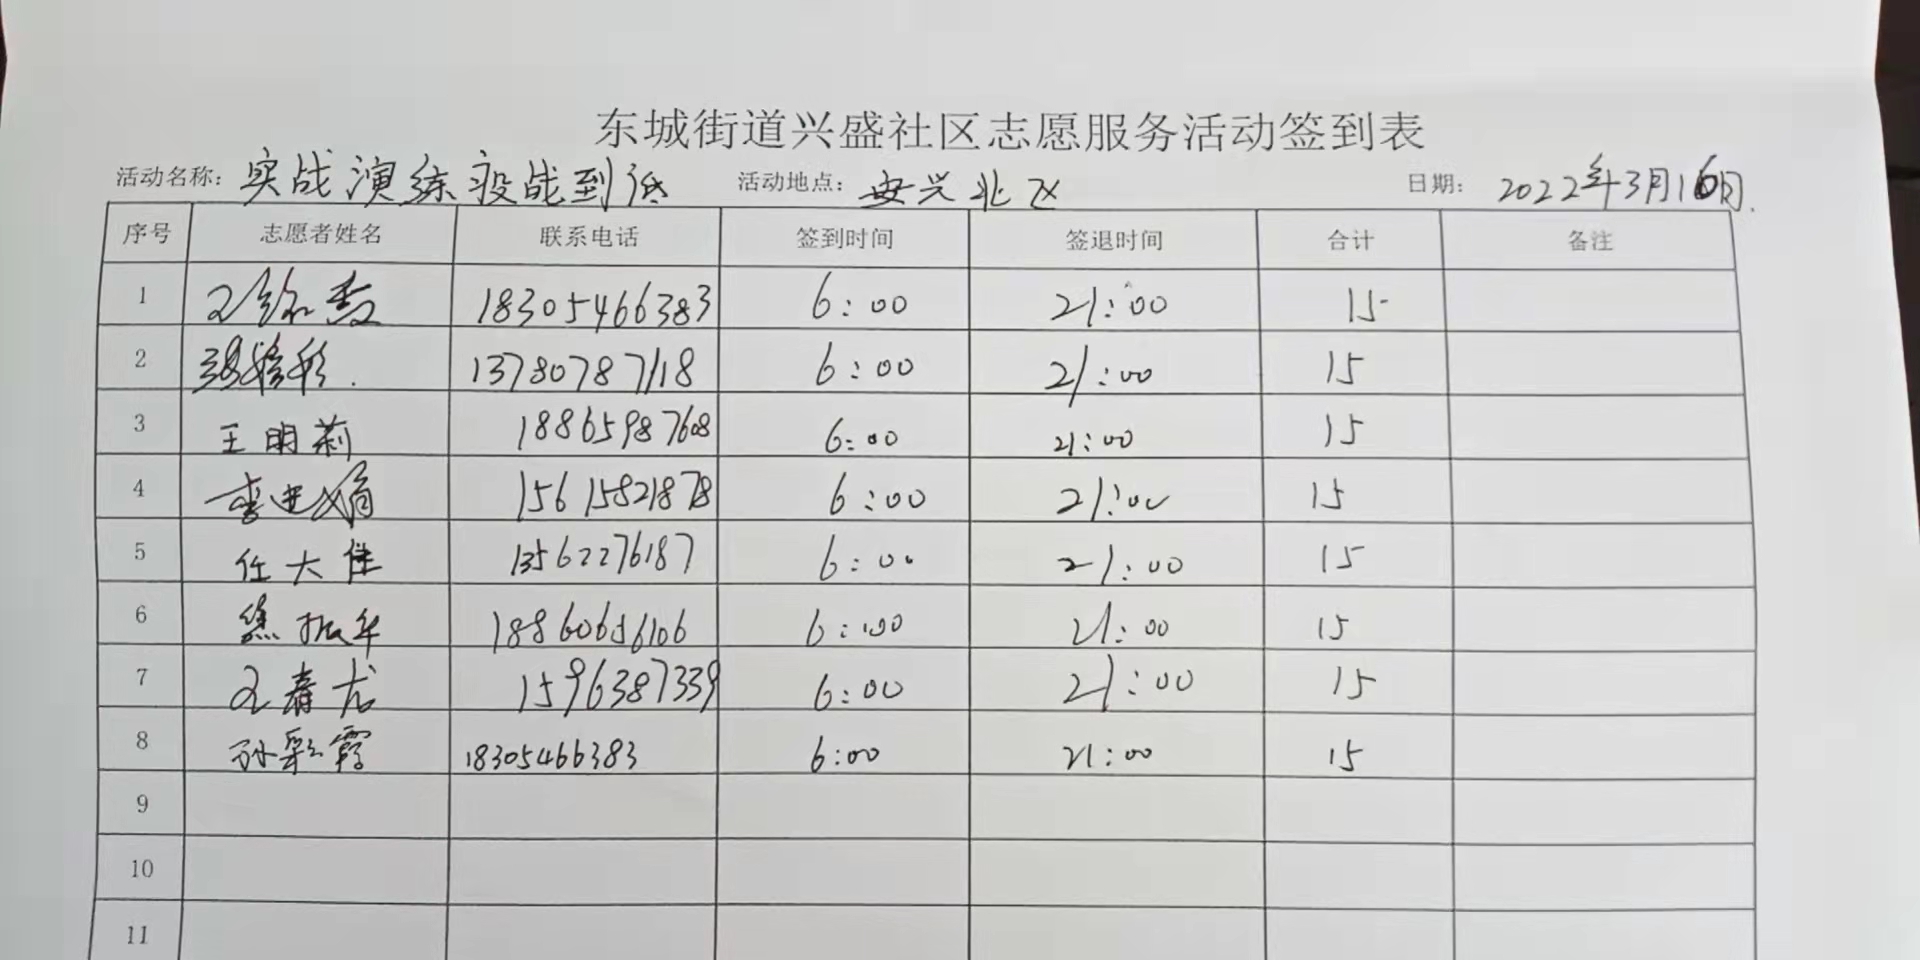 东城街道兴盛社区志愿服务活动签到表
活动名称: 实战演练疫战到底 活动地点: 安兴北区 日期: 2022年3月16日.
序号 志愿者姓名 联系电话 签到时间 签退时间 合计 备注
1 18305466383 6:00 21:00 15
2 13780787118 6:00 21:00 15
3 王明莉 18865987608 6:00 21:00 15
4 15615821878 6:00 21:00 15
5 任大佳 13562276187 6:00 21:00 15
6 焦振华 6:00 21:00 15
7 王春龙 1596387339 6:00 21:00 15
8 孙彩霞 18305466383 6:00 21:00 15
9
10
11